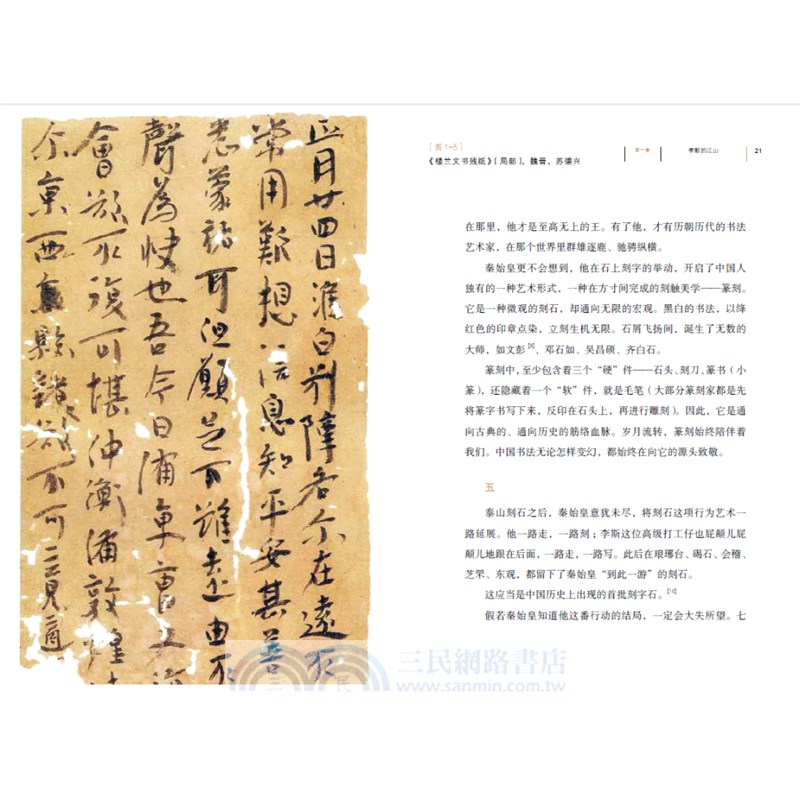 [图1-5]
《楼兰文书残纸》(局部),魏晋,苏德兴
第一章
李斯的江山
21
在那里,他才是至高无上的王。有了他,才有历朝历代的书法
艺术家,在那个世界里群雄逐鹿、驰骋纵横。
秦始皇更不会想到,他在石上刻字的举动,开启了中国人
独有的一种艺术形式,一种在方寸间完成的刻触美学——篆刻。
它是一种微观的刻石,却通向无限的宏观。黑白的书法,以绛
红色的印章点染,立刻生机无限。石屑飞扬间,诞生了无数的
大师,如文彭、邓石如、吴昌硕、齐白石。
篆刻中,至少包含着三个“硬”件——石头、刻刀、篆书(小
篆),还隐藏着一个“软”件,就是毛笔(大部分篆刻家都是先
将篆字书写下来,反印在石头上,再进行雕刻)。因此,它是通
向古典的、通向历史的筋络血脉。岁月流转,篆刻始终陪伴着
我们。中国书法无论怎样变幻,都始终在向它的源头致敬。
五
泰山刻石之后,秦始皇意犹未尽,将刻石这项行为艺术一
路延展。他一路走,一路刻;李斯这位高级打工仔也屁颠儿屁
颠儿地跟在后面,一路走,一路写。此后在琅琊台、碣石、会稽、
芝罘、东观,都留下了秦始皇“到此一游”的刻石。
这应当是中国历史上出现的首批刻字石。
假若秦始皇知道他这番行动的结局,一定会大失所望。七
正月廿四日淮白别障各尔在遠不
常用歎想信息知平安甚善
悉蒙祐耳但願足下雖遠由不
聲為快也吾今日備東曹
會欲不復可堪仲衡備敦煌
尔東西
三民網路書店
www.sanmin.com.tw
三
民